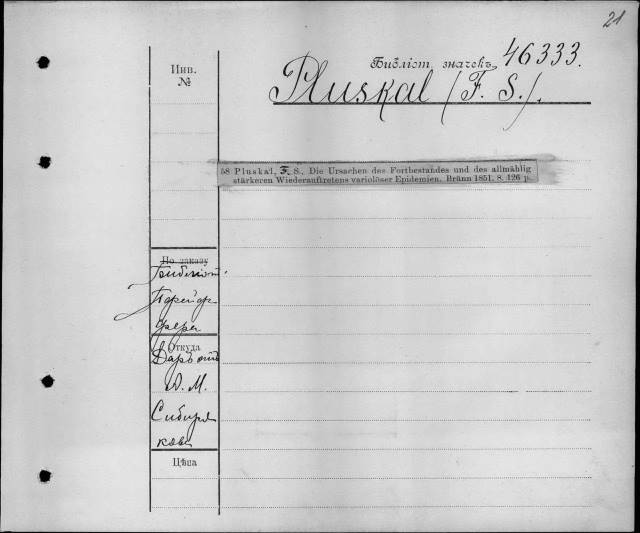 21
Библіот. значекъ 46333.
Pluskal (F. S.).
Инв.
№
58 Pluskal, F. S., Die Ursachen des Fortbestandes und des allmählig
stärkeren Wiederauftretens variolöser Epidemien. Brünn 1851. 8. 126 p.
По заказу
Библіот.
Пфейф
фера
Откуда
Даръ отъ
А. М.
Сибиря
кова
Цѣна